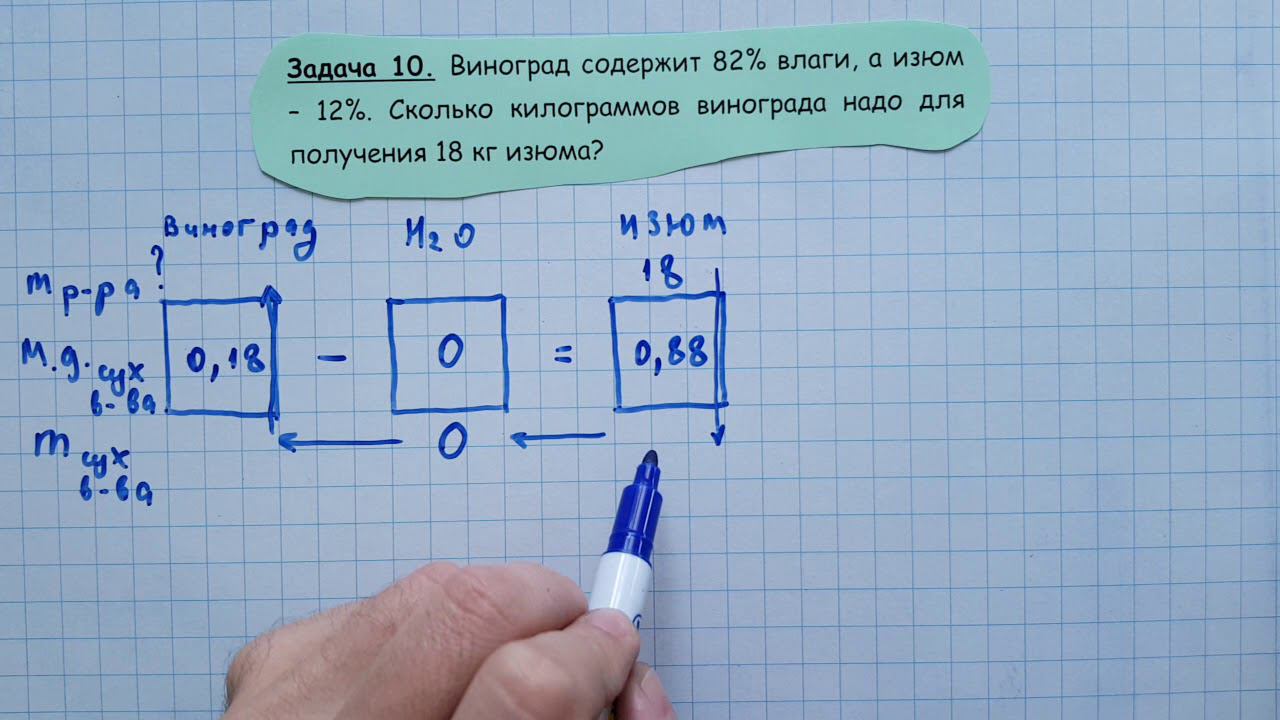 Задача 10. Виноград содержит 82% влаги, а изюм
– 12%. Сколько килограммов винограда надо для
получения 18 кг изюма?
виноград H₂O изюм
m р-ра ? 18
м.д. сух в-ва 0,18 – 0 = 0,88
m сух в-ва 0